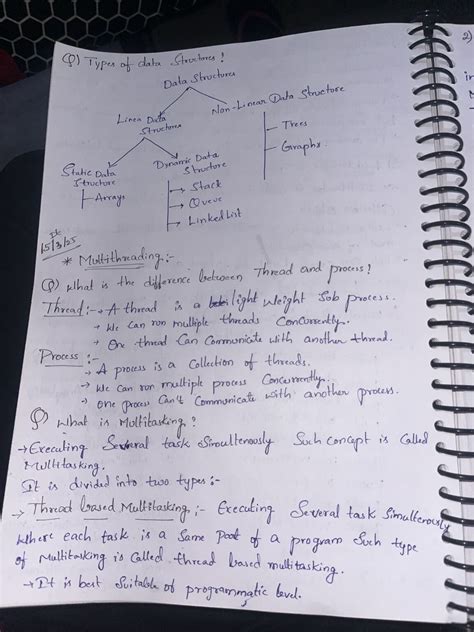 Q) Types of data Structures!
Data Structures
Linea Data Structures
Non-Linear Data Structure
Trees
Graphs
Static Data Structure
Arrays
Dynamic Data Structure
Stack
Queue
Linked List
15/3/25
* Multithreading:-
Q) What is the difference between Thread and process?
Thread:- → A thread is a light weight Sob process.
→ We Can run multiple threads Concurrently.
→ One thread Can Communicate with another thread.
Process:-
→ A process is a Collection of threads.
→ We Can run multiple process Concurrently.
→ One process Can't Communicate with another process.
Q) What is Multitasking?
→ Executing Several task Simultenously Such concept is Called
Multitasking.
It is divided into two types:-
→ Thread based Multitasking:- Executing Several task Simultenously
Where each task is a Same Part of a program Such type
of Multitasking is Called thread based multitasking.
→ It is best Suitable of programmatic level.
2)
in